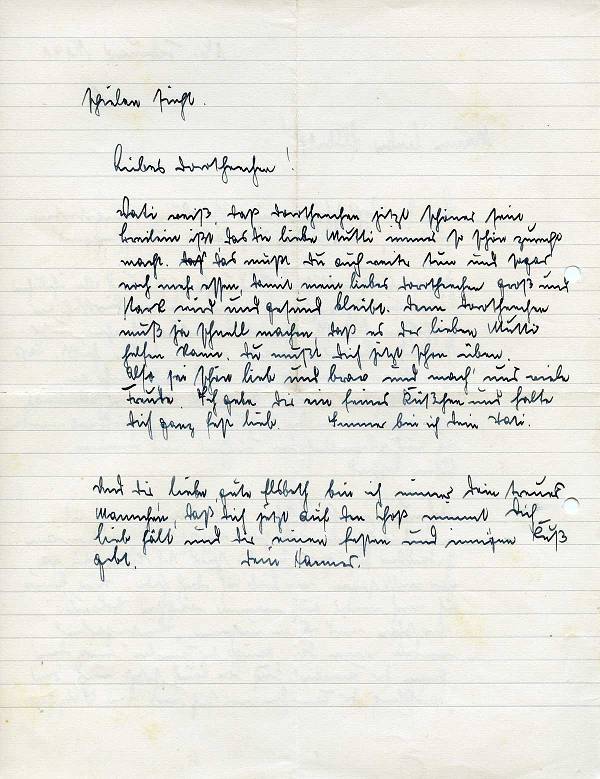 spielen singt.
Liebes Dorotheechen!
Vati weiß, daß Dorotheechen jetzt schönes fein
ißt, das die liebe Mutti immer so schön zurecht
macht. Das mußt Du auch weiter tun und sogar
noch mehr essen, damit mein liebes Dorotheechen groß und
stark wird und gesund bleibt. Denn Dorotheechen
muß ja schnell machen, daß es der lieben Mutti
helfen kann. Du mußt Dich jetzt schon üben.
Also sei schön lieb und brav und mach' uns viele
Freude. Ich gebe Dir ein feines Küßchen und halte
Dich ganz fest lieb. Immer bin ich Dein Vati.
Und Dir liebe gute Elsbeth bin ich immer Dein treues
Männchen, daß Dich jetzt auf den Schoß nimmt, Dich
lieb hält und Dir einen festen und innigen Kuß
gibt. Dein Hannes.